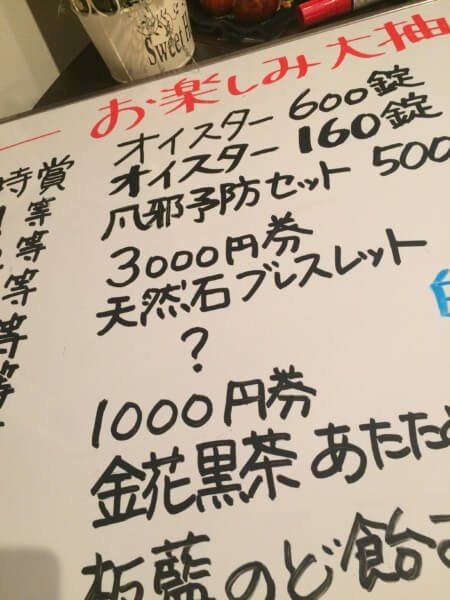 Sweet H
お楽しみ大抽
時賞 オイスター 600錠
等 オイスター 160錠
等 風邪予防セット 500
等 3000円券
等 天然石ブレスレット
等 ?
1000円券
金花黒茶 あたた
板藍のど飴